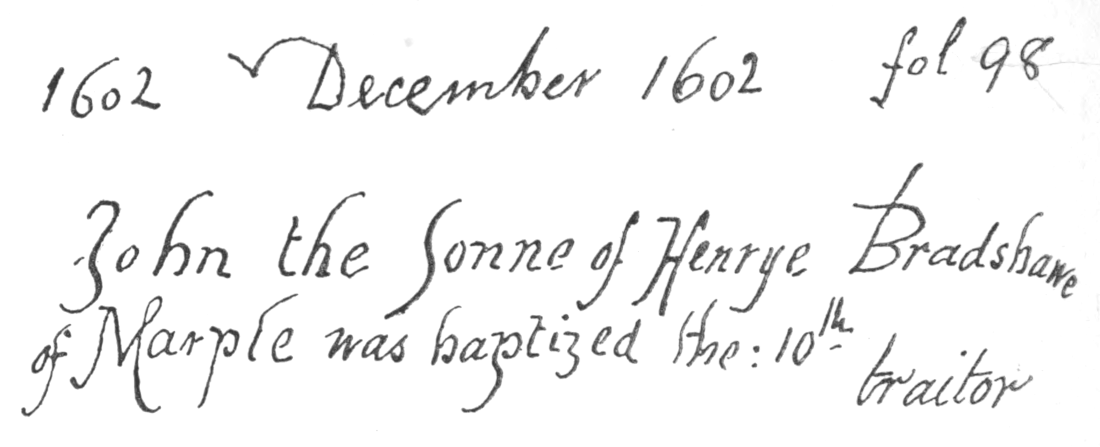 1602 December 1602 fol 98
John the Sonne of Henrye Bradshawe
of Marple was baptized the: 10th
traitor